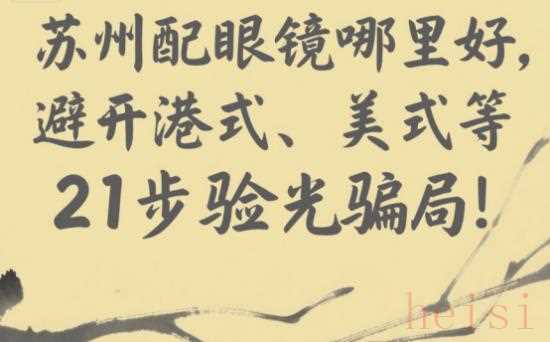 苏州配眼镜哪里好,
避开港式、美式等
21步验光骗局!
heisi